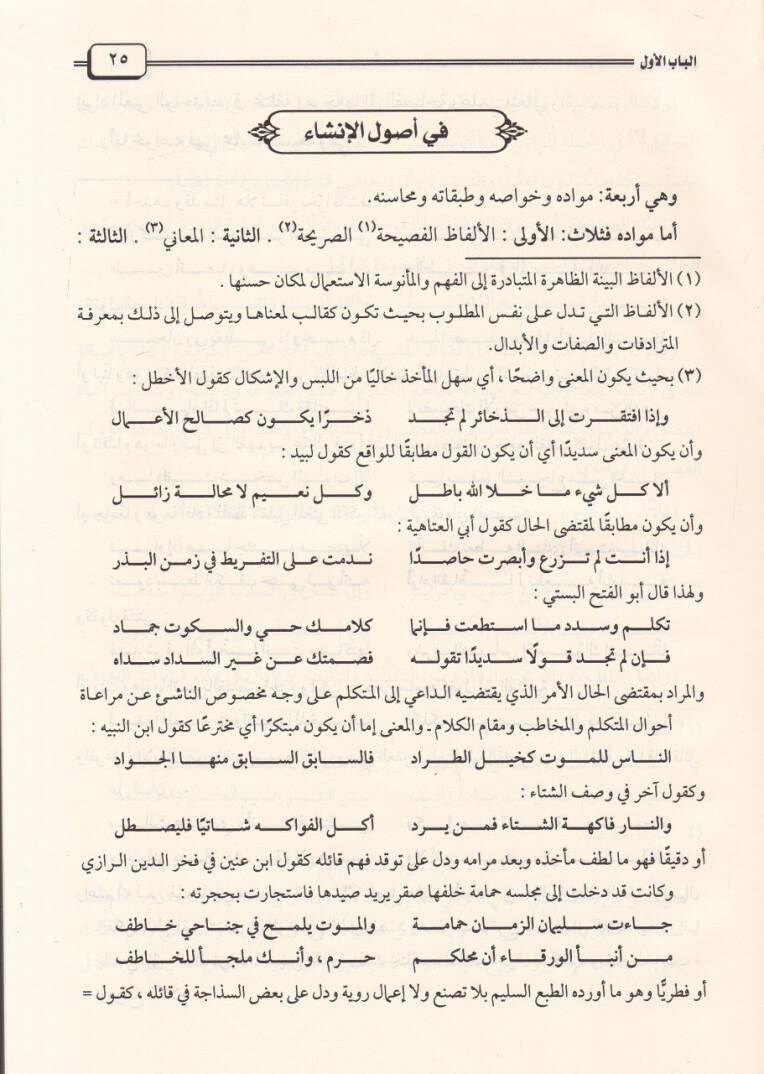 الباب الأول
٢٥
في أصول الإنشاء
وهي أربعة: مواده وخواصه وطبقاته ومحاسنه.
أما مواده فثلاث: الأولى : الألفاظ الفصيحة(١) الصريحة(٢) . الثانية : المعاني(٣) . الثالثة :
(١) الألفاظ البينة الظاهرة المتبادرة إلى الفهم والمأنوسة الاستعمال لمكان حسنها .
(٢) الألفاظ التي تدل على نفس المطلوب بحيث تكون كقالب لمعناها ويتوصل إلى ذلك بمعرفة
المترادفات والصفات والأبدال.
(٣) بحيث يكون المعنى واضحًا ، أي سهل المأخذ خاليًا من اللبس والإشكال كقول الأخطل :
وإذا افتقرت إلى الذخائر لم تجد ذخرًا يكون كصالح الأعمال
وأن يكون المعنى سديدًا أي أن يكون القول مطابقًا للواقع كقول لبيد :
ألا كل شيء ما خلا الله باطل وكل نعيم لا محالة زائل
وأن يكون مطابقًا لمقتضى الحال كقول أبي العتاهية :
إذا أنت لم تزرع وأبصرت حاصدًا ندمت على التفريط في زمن البذر
ولهذا قال أبو الفتح البستي :
تكلم وسدد ما استطعت فإنما كلامك حي والسكوت جماد
فإن لم تجد قولًا سديدًا تقوله فصمتك عن غير السداد سداه
والمراد بمقتضى الحال الأمر الذي يقتضيه الداعي إلى المتكلم على وجه مخصوص الناشئ عن مراعاة
أحوال المتكلم والمخاطب ومقام الكلام ـ والمعنى إما أن يكون مبتكرًا أي مخترعًا كقول ابن النبيه :
الناس للموت كخيل الطراد فالسابق السابق منها الجواد
وكقول آخر في وصف الشتاء :
والنار فاكهة الشتاء فمن يرد أكل الفواكه شاتيًا فليصطل
أو دقيقًا فهو ما لطف مأخذه وبعد مرامه ودل على توقد فهم قائله كقول ابن عنين في فخر الدين الرازي
وكانت قد دخلت إلى مجلسه حمامة خلفها صقر يريد صيدها فاستجارت بحجرته :
جاءت سليمان الزمان حمامة والموت يلمح في جناحي خاطف
من أنبأ الورقاء أن محلكم حرم ، وأنك ملجأ للخاطف
أو فطريًّا وهو ما أورده الطبع السليم بلا تصنع ولا إعمال روية ودل على بعض السذاجة في قائله ، كقول =